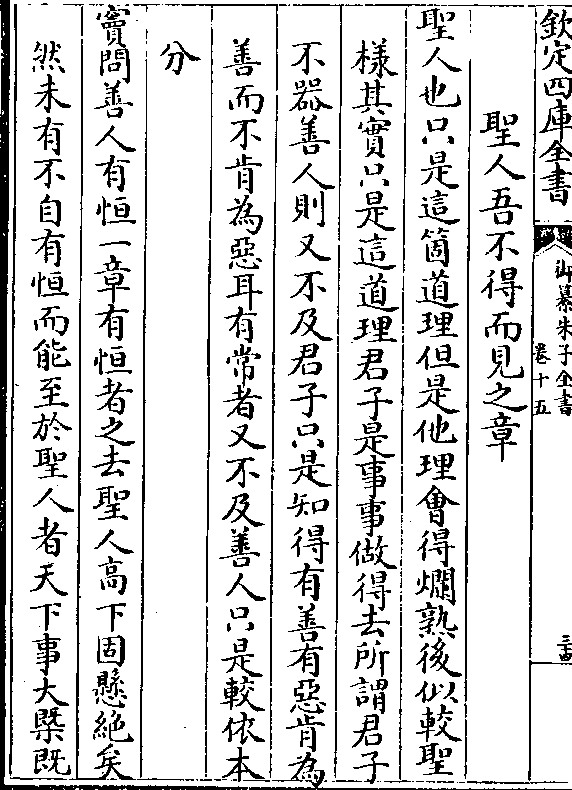 欽定四庫全書
御纂朱子全書
卷十五
三十四
聖人吾不得而見之章
聖人也只是這箇道理但是他理會得爛熟後似較聖
樣其實只是這道理君子是事事做得去所謂君子
不器善人則又不及君子只是知得有善有惡肯為
善而不肯為惡耳有常者又不及善人只是較依本
分
竇問善人有恒一章有恒者之去聖人高下固懸絶矣
然未有不自有恒而能至於聖人者天下事大槩既